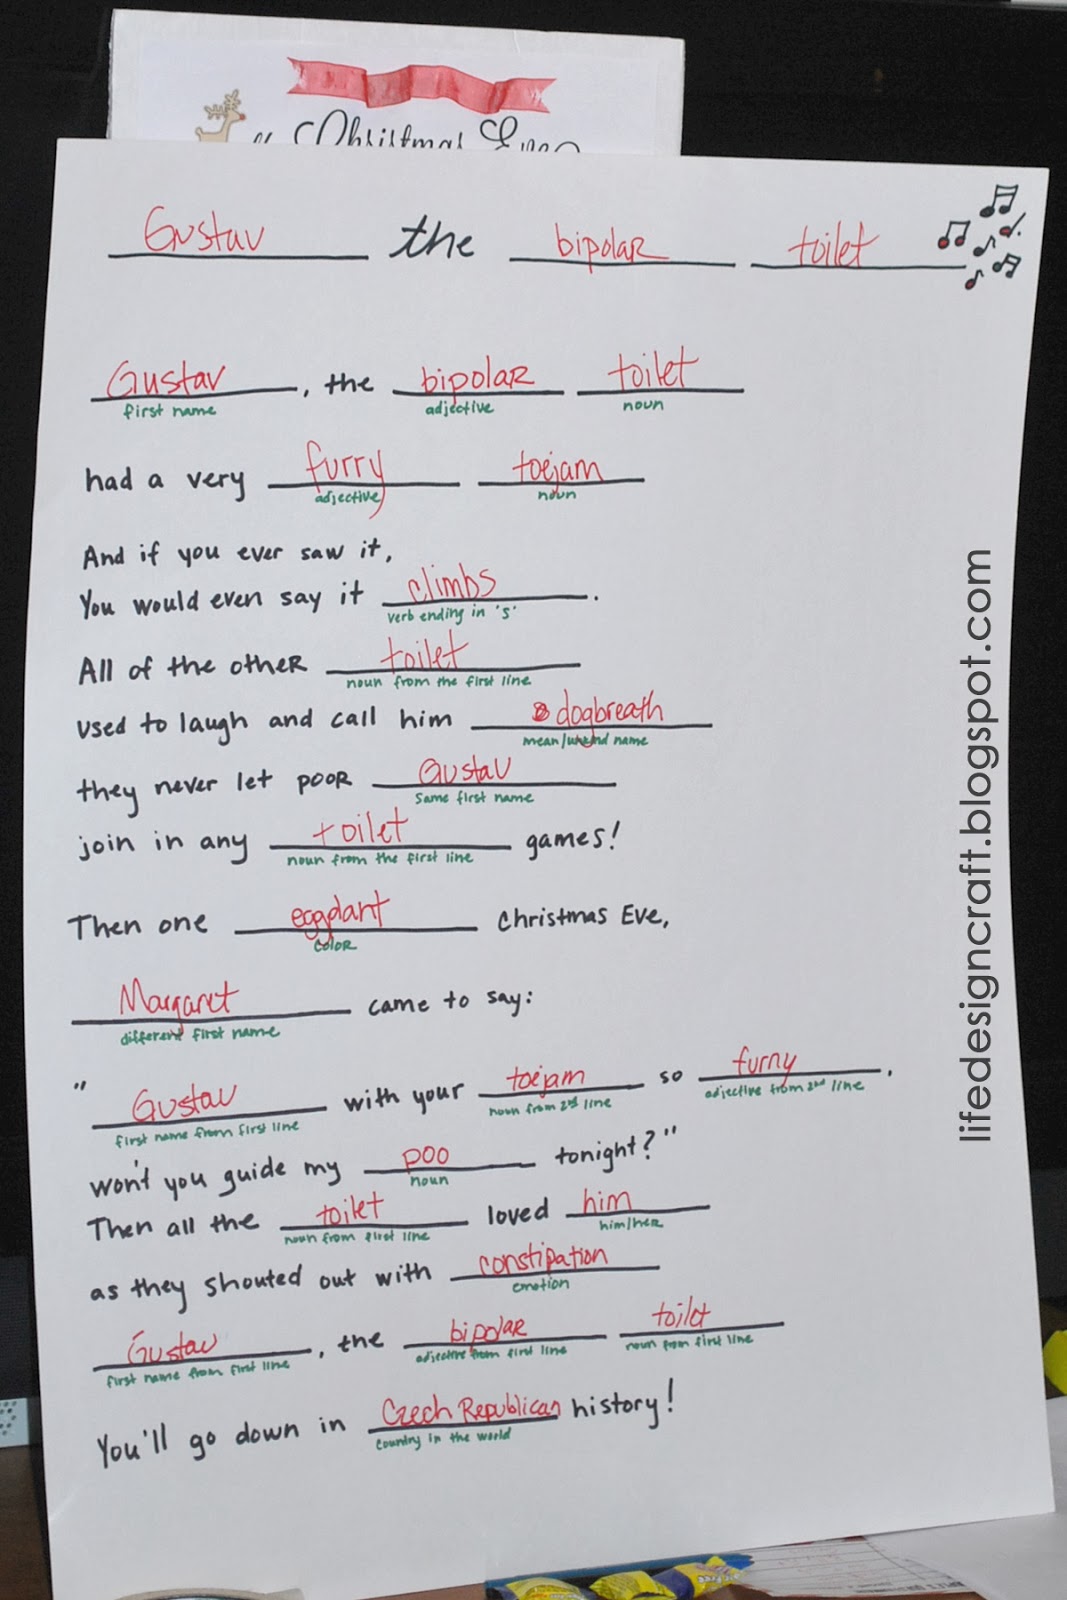 a Christmas Eve
Gustav the bipolar toilet
Gustav, the bipolar toilet
first name adjective noun
had a very furry toejam
adjective noun
And if you ever saw it,
You would even say it climbs.
verb ending in 's'
All of the other toilet
noun from the first line
used to laugh and call him dogbreath
mean/unkind name
they never let poor Gustav
same first name
join in any toilet games!
noun from the first line
Then one eggplant Christmas Eve,
color
Margaret came to say:
different first name
"Gustav with your toejam so furry,
first name from first line noun from 2nd line adjective from 2nd line
won't you guide my poo tonight?"
noun
Then all the toilet loved him
noun from first line him/her
as they shouted out with constipation
emotion
Gustav, the bipolar toilet
first name from first line adjective from first line noun from first line
You'll go down in Czech Republican history!
country in the world
lifedesigncraft.blogspot.com